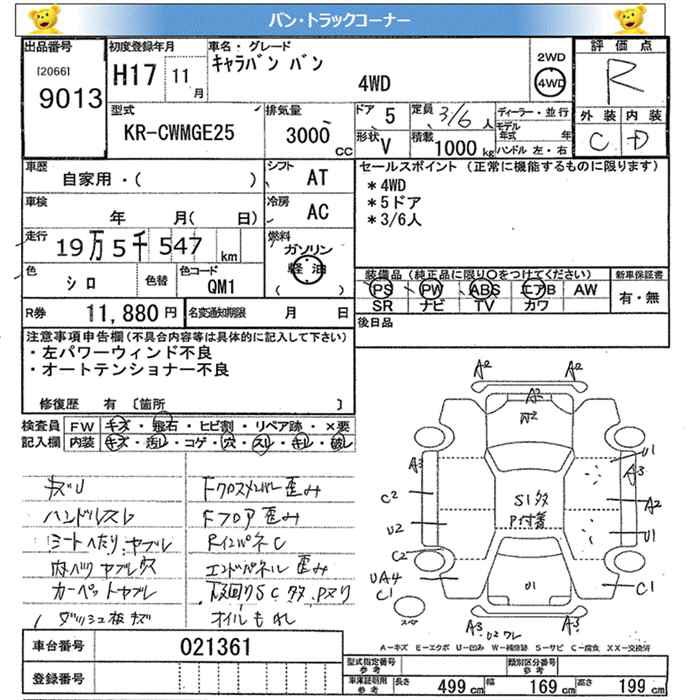 バン・トラックコーナー
出品番号
[2066]
9013
初度登録年月
H17 11月
車名・グレード
キャラバン バン
4WD
2WD
4WD
評価点
R
型式
KR-CWMGE25
排気量
3000 CC
ドア 5
定員 3/6 人
形状 V
積載 1000 kg
ディーラー・並行
モデル年式 年
ハンドル 左・右
外装 内装
C D
車歴
自家用・( )
シフト AT
車検
年 月( 日)
冷房 AC
走行
19万5千547 km
燃料
ガソリン
軽油
( )
色 シロ
色替
色コード QM1
R券 11,880 円
名変通知期限 月 日
セールスポイント (正常に機能するものに限ります)
*4WD
*5ドア
*3/6人
装備品 (純正品に限り〇をつけてください)
PS PW ABS エアB AW
SR ナビ TV カワ
新車保証書
有・無
後日品
注意事項申告欄 (不具合内容等は具体的に記入して下さい)
・左パワーウィンド不良
・オートテンショナー不良
修復歴 有 〔箇所 〕
検査員記入欄
FW キズ・飛石・ヒビ割・リペア跡・×要
内装 キズ・汚レ・コゲ・穴・スレ・キレ・破レ
ハンドルスレ
シートへたり、ヤブレ
内ハリ ヤブレ 穴
カーペットヤブレ
ダッシュ板キズ
Fクロスメンバー歪み
Fフロア歪み
RインパネC
エンドパネル歪み
下回りSC多、Pヌリ
オイルもれ
A2 A2
A2
W2
A3
U1
A3
C2
S1多
P付着
A2
U2
U1
C2
UA4
C1
U1
C1
スペア
A3
U2ワレ
A3
A-キズ E-エクボ U-凹み W-補修跡 S-サビ C-腐食 XX-交換済
車台番号 021361
登録番号
型式指定番号 参考
類別区分番号 参考
車庫証明用 参考 長さ 499 cm 幅 169 cm 高さ 199 cm